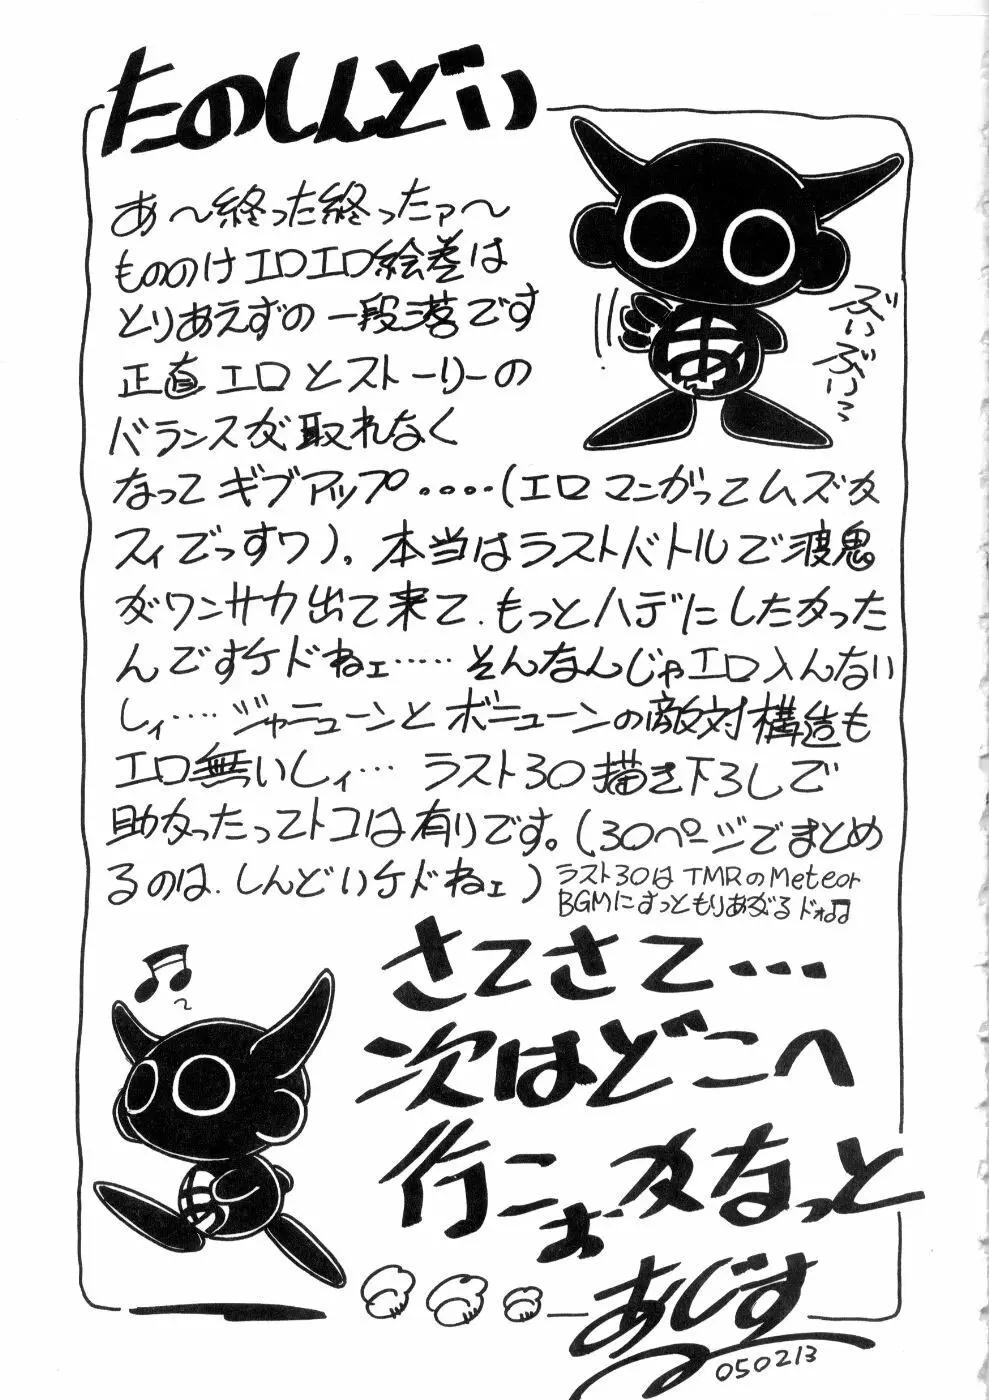 たのしんどい
あ～終った終ったァ～
もののけエロエロ絵巻は
とりあえずの一段落です
正直エロとストーリーの
バランスが取れなく
なってギブアップ・・・・(エロマンガってムズカ
スィでっすワ)。本当はラストバトルで渡鬼
がワンサカ出て来て、もっとハデにしたかった
んですケドねェ……そんなんじゃエロ入んない
しィ‥‥ジャニューンとボニューンの敵対構造も
エロ無いしィ… ラスト30描き下ろしで
助かったってトコは有りです。(30ページでまとめ
るのは、しんどいケドねェ)
ラスト30はTMRのMeteor
BGMにすっともりあがるドォ♫
ぶいぶいっ
あ
さてさて…
次はどこへ
行こぉかなっと
あじす
050213